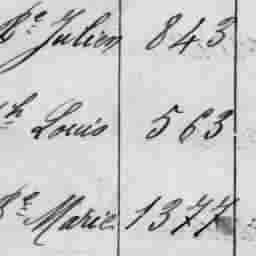 Julien 843
Louis 563
Marie 1377